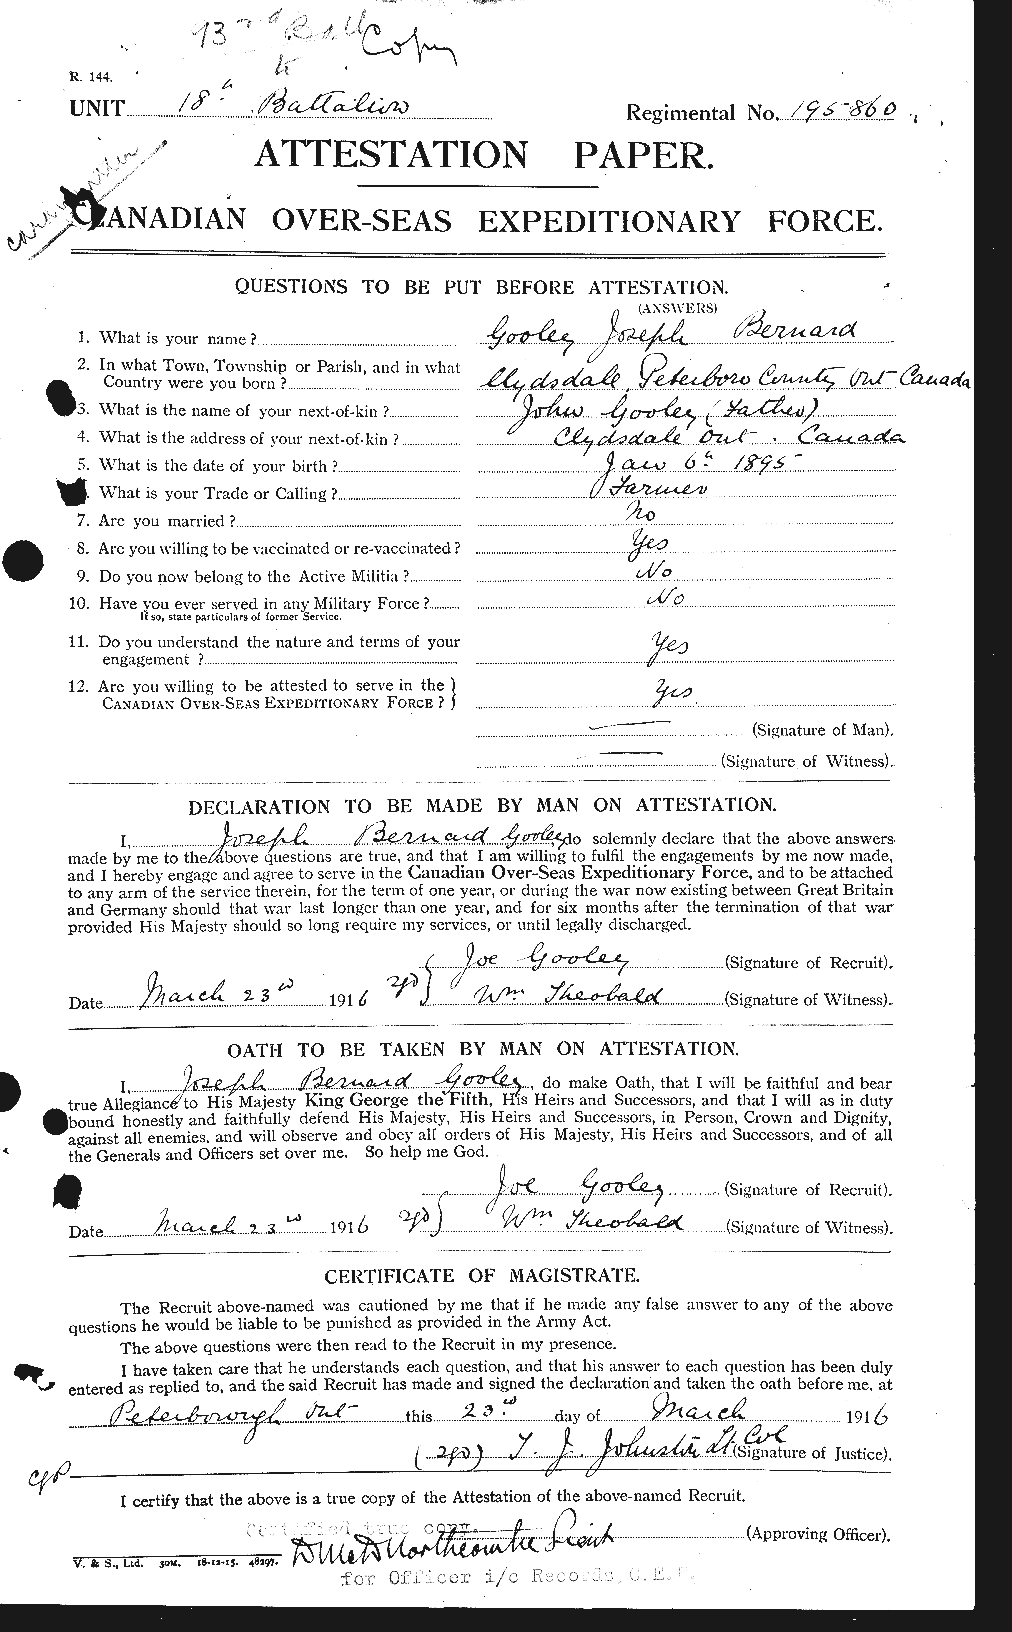 93rd Batt Copy
to
R. 144.
UNIT 18th Battalion
Regimental No. 195860
ATTESTATION PAPER.
CANADIAN OVER-SEAS EXPEDITIONARY FORCE.
QUESTIONS TO BE PUT BEFORE ATTESTATION.
(ANSWERS)
1. What is your name? Gooley Joseph Bernard
2. In what Town, Township or Parish, and in what
Country were you born? Clydsdale, Peterboro County Ont Canada
3. What is the name of your next-of-kin? John Gooley (Father)
4. What is the address of your next-of-kin? Clydsdale Ont. Canada
5. What is the date of your birth? Jan 6th 1895
What is your Trade or Calling? Farmer
7. Are you married? No
8. Are you willing to be vaccinated or re-vaccinated? Yes
9. Do you now belong to the Active Militia? No
10. Have you ever served in any Military Force? No
If so, state particulars of former Service.
11. Do you understand the nature and terms of your
engagement? Yes
12. Are you willing to be attested to serve in the
CANADIAN OVER-SEAS EXPEDITIONARY FORCE? Yes
(Signature of Man).
(Signature of Witness).
DECLARATION TO BE MADE BY MAN ON ATTESTATION.
I, Joseph Bernard Gooley do solemnly declare that the above answers
made by me to the above questions are true, and that I am willing to fulfil the engagements by me now made,
and I hereby engage and agree to serve in the Canadian Over-Seas Expeditionary Force, and to be attached
to any arm of the service therein, for the term of one year, or during the war now existing between Great Britain
and Germany should that war last longer than one year, and for six months after the termination of that war
provided His Majesty should so long require my services, or until legally discharged.
Joe Gooley (Signature of Recruit).
Date March 23rd 1916 sgd Wm Theobald (Signature of Witness).
OATH TO BE TAKEN BY MAN ON ATTESTATION.
I, Joseph Bernard Gooley, do make Oath, that I will be faithful and bear
true Allegiance to His Majesty King George the Fifth, His Heirs and Successors, and that I will as in duty
bound honestly and faithfully defend His Majesty, His Heirs and Successors, in Person, Crown and Dignity,
against all enemies, and will observe and obey all orders of His Majesty, His Heirs and Successors, and of all
the Generals and Officers set over me. So help me God.
Joe Gooley (Signature of Recruit).
Date March 23rd 1916 sgd Wm Theobald (Signature of Witness).
CERTIFICATE OF MAGISTRATE.
The Recruit above-named was cautioned by me that if he made any false answer to any of the above
questions he would be liable to be punished as provided in the Army Act.
The above questions were then read to the Recruit in my presence.
I have taken care that he understands each question, and that his answer to each question has been duly
entered as replied to, and the said Recruit has made and signed the declaration and taken the oath before me, at
Peterborough Ont this 23rd day of March 1916
(sgd) T. J. Johnston Lt Col (Signature of Justice).
I certify that the above is a true copy of the Attestation of the above-named Recruit.
Certified true copy.
(Approving Officer).
V. & S., Ltd. 50M. 18-12-15. 48297.
for Officer i/c Records, C.E.F.